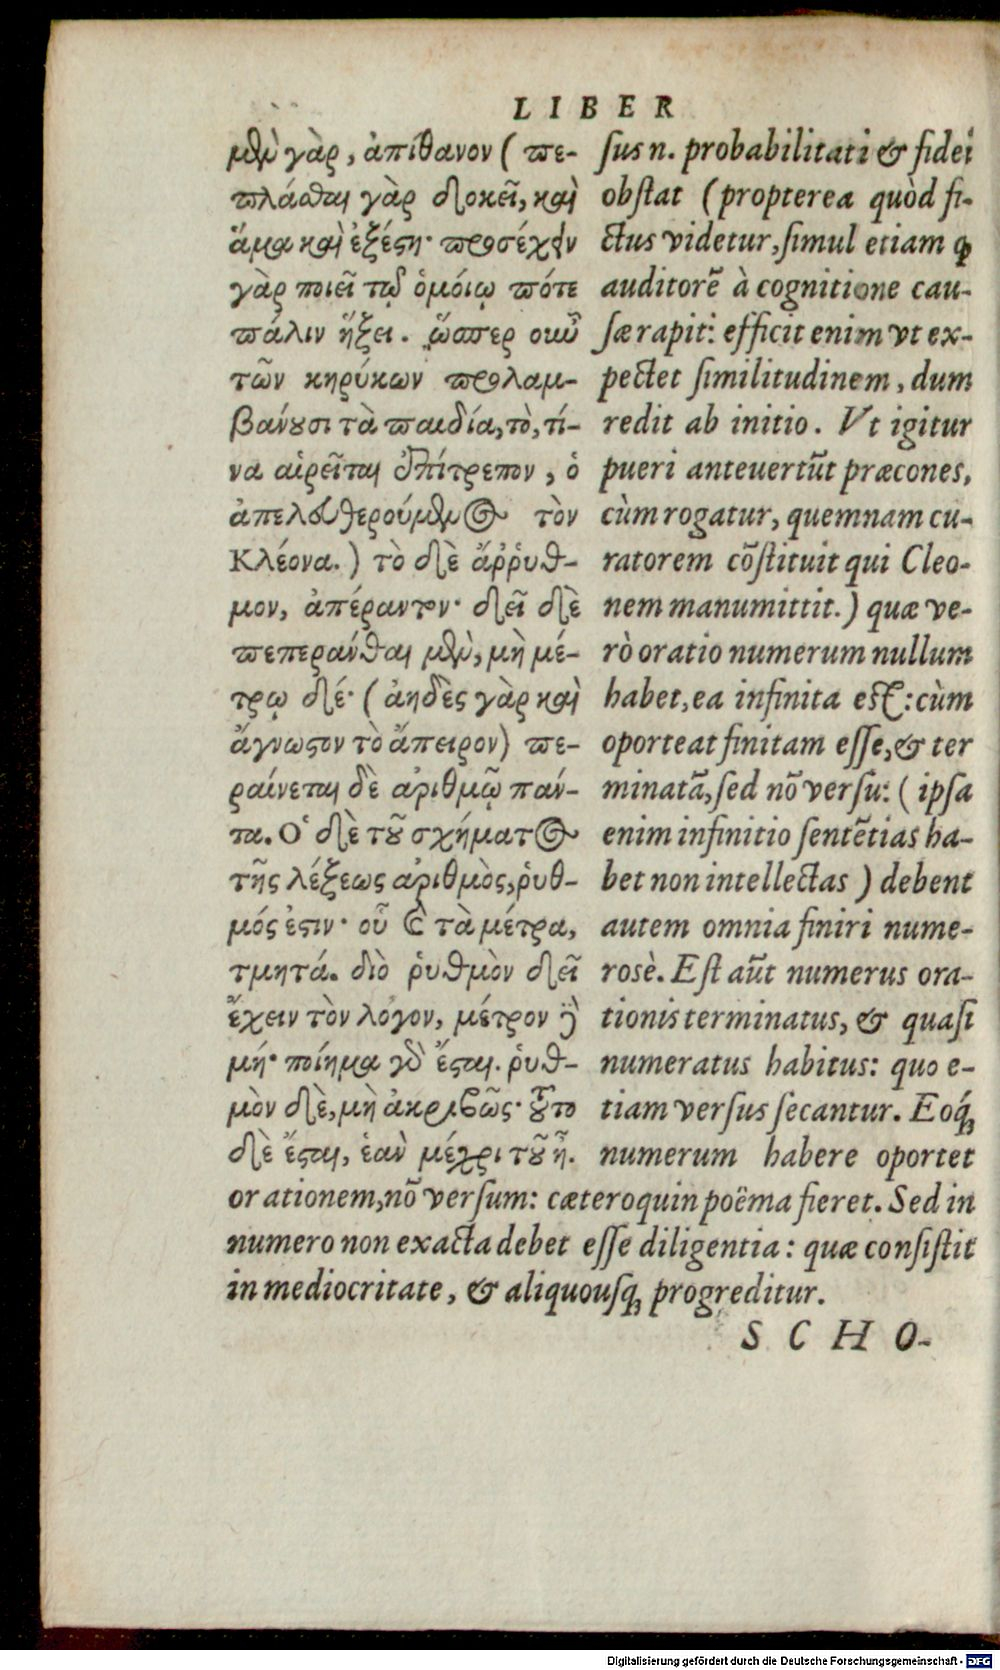 LIBER
μὲν γὰρ, ἀπίθανον ( πε-
πλάσθαι γὰρ δοκεῖ, καὶ
ἅμα καὶ ἐξίστησι· προσέχειν
γὰρ ποιεῖ τῷ ὁμοίῳ πότε
πάλιν ἥξει. ὥσπερ οὖν
τῶν κηρύκων προλαμ-
βάνουσι τὰ παιδία, τὸ, τί-
να αἱρεῖται ἐπίτροπον, ὁ
ἀπελευθερούμενος τὸν
Κλέονα.) τὸ δὲ ἄῤῥυθ-
μον, ἀπέραντον· δεῖ δὲ
πεπεράνθαι μὲν, μὴ μέ-
τρῳ δέ· ( ἀηδὲς γὰρ καὶ
ἄγνωστον τὸ ἄπειρον) πε-
ραίνεται δὲ ἀριθμῷ πάν-
τα. Ὁ δὲ τοῦ σχήματος
τῆς λέξεως ἀριθμὸς, ῥυθ-
μός ἐστιν· οὗ καὶ τὰ μέτρα,
τμητά. διὸ ῥυθμὸν δεῖ
ἔχειν τὸν λόγον, μέτρον δὲ
μή· ποίημα γὰρ ἔσται. ῥυθ-
μὸν δὲ, μὴ ἀκριβῶς· τοῦτο
δὲ ἔσται, ἐὰν μέχρι τοῦ ᾖ.
sus n. probabilitati & fidei
obstat (propterea quòd fi-
ctus videtur, simul etiam ꝙ
auditorẽ à cognitione cau-
sæ rapit: efficit enim vt ex-
pectet similitudinem, dum
redit ab initio. Vt igitur
pueri anteuertũt præcones,
cùm rogatur, quemnam cu-
ratorem cõstituit qui Cleo-
nem manumittit.) quæ ve-
rò oratio numerum nullum
habet, ea infinita est: cùm
oporteat finitam esse, & ter
minatã, sed nõ versu: ( ipsa
enim infinitio sentẽtias ha-
bet non intellectas ) debent
autem omnia finiri nume-
rosè. Est aũt numerus ora-
tionis terminatus, & quasi
numeratus habitus: quo e-
tiam versus secantur. Eoq́;
numerum habere oportet
orationem, nõ versum: cæteroquin poëma fieret. Sed in
numero non exacta debet esse diligentia: quæ consistit
in mediocritate, & aliquousq; progreditur.
SCHO-
Digitalisierung gefördert durch die Deutsche Forschungsgemeinschaft - DFG